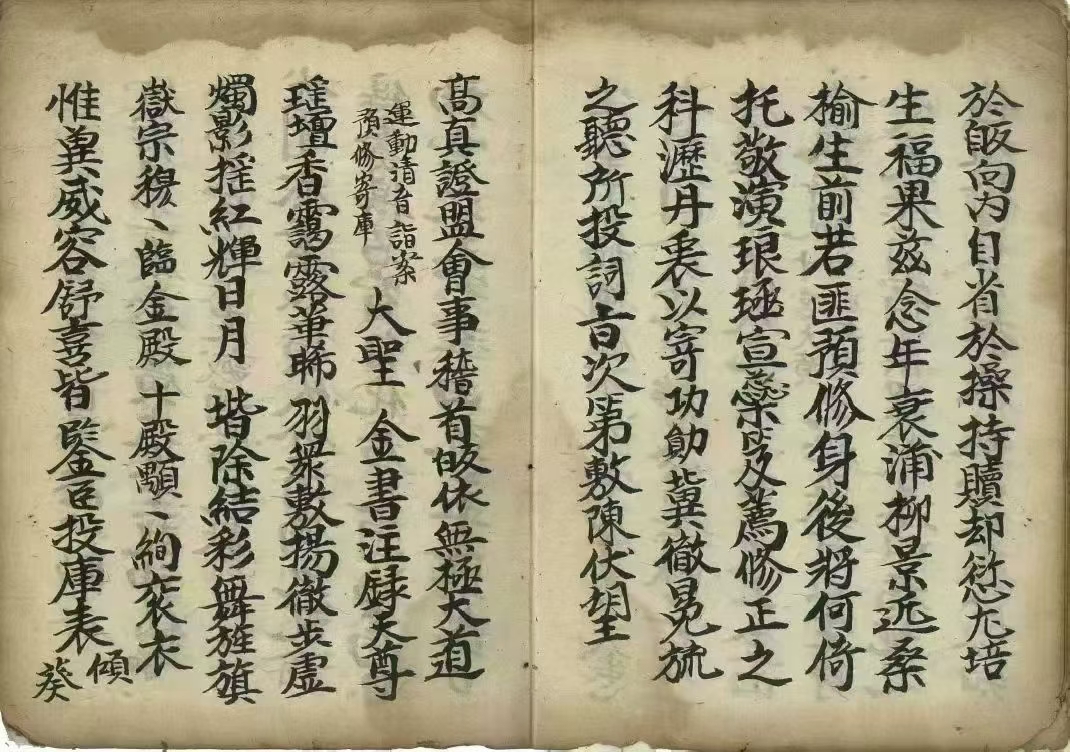 於皈向內自省於操持贖却愆尤培
生福果兹念年衰蒲柳景近桑
榆生前若匪預修身後將何倚
托敬演琅宣蘂笈薦修正之
科瀝丹衷以寄功勛冀徹冕旒
之聽所投詞旨次第敷陳伏望
高真證盟會事稽首皈依無極大道
運動清音詣案
預修寄庫
大聖 金書注錄天尊
瑤壇香靄露華晞 羽衆敷揚徹步虛
燭影摇紅輝日月 堦除結彩舞旌旗
嶽宗穆、臨金殿 十殿顒、絢衮衣
惟兾威容舒喜皆鍳臣投庫表
傾
葵